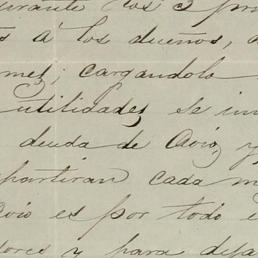 durante los 3 pr
s á los dueños, a
mes; cargandolo
utilidades se in
deuda de Avio, y
partiran cada m
Avio es por todo e
dores y para deja